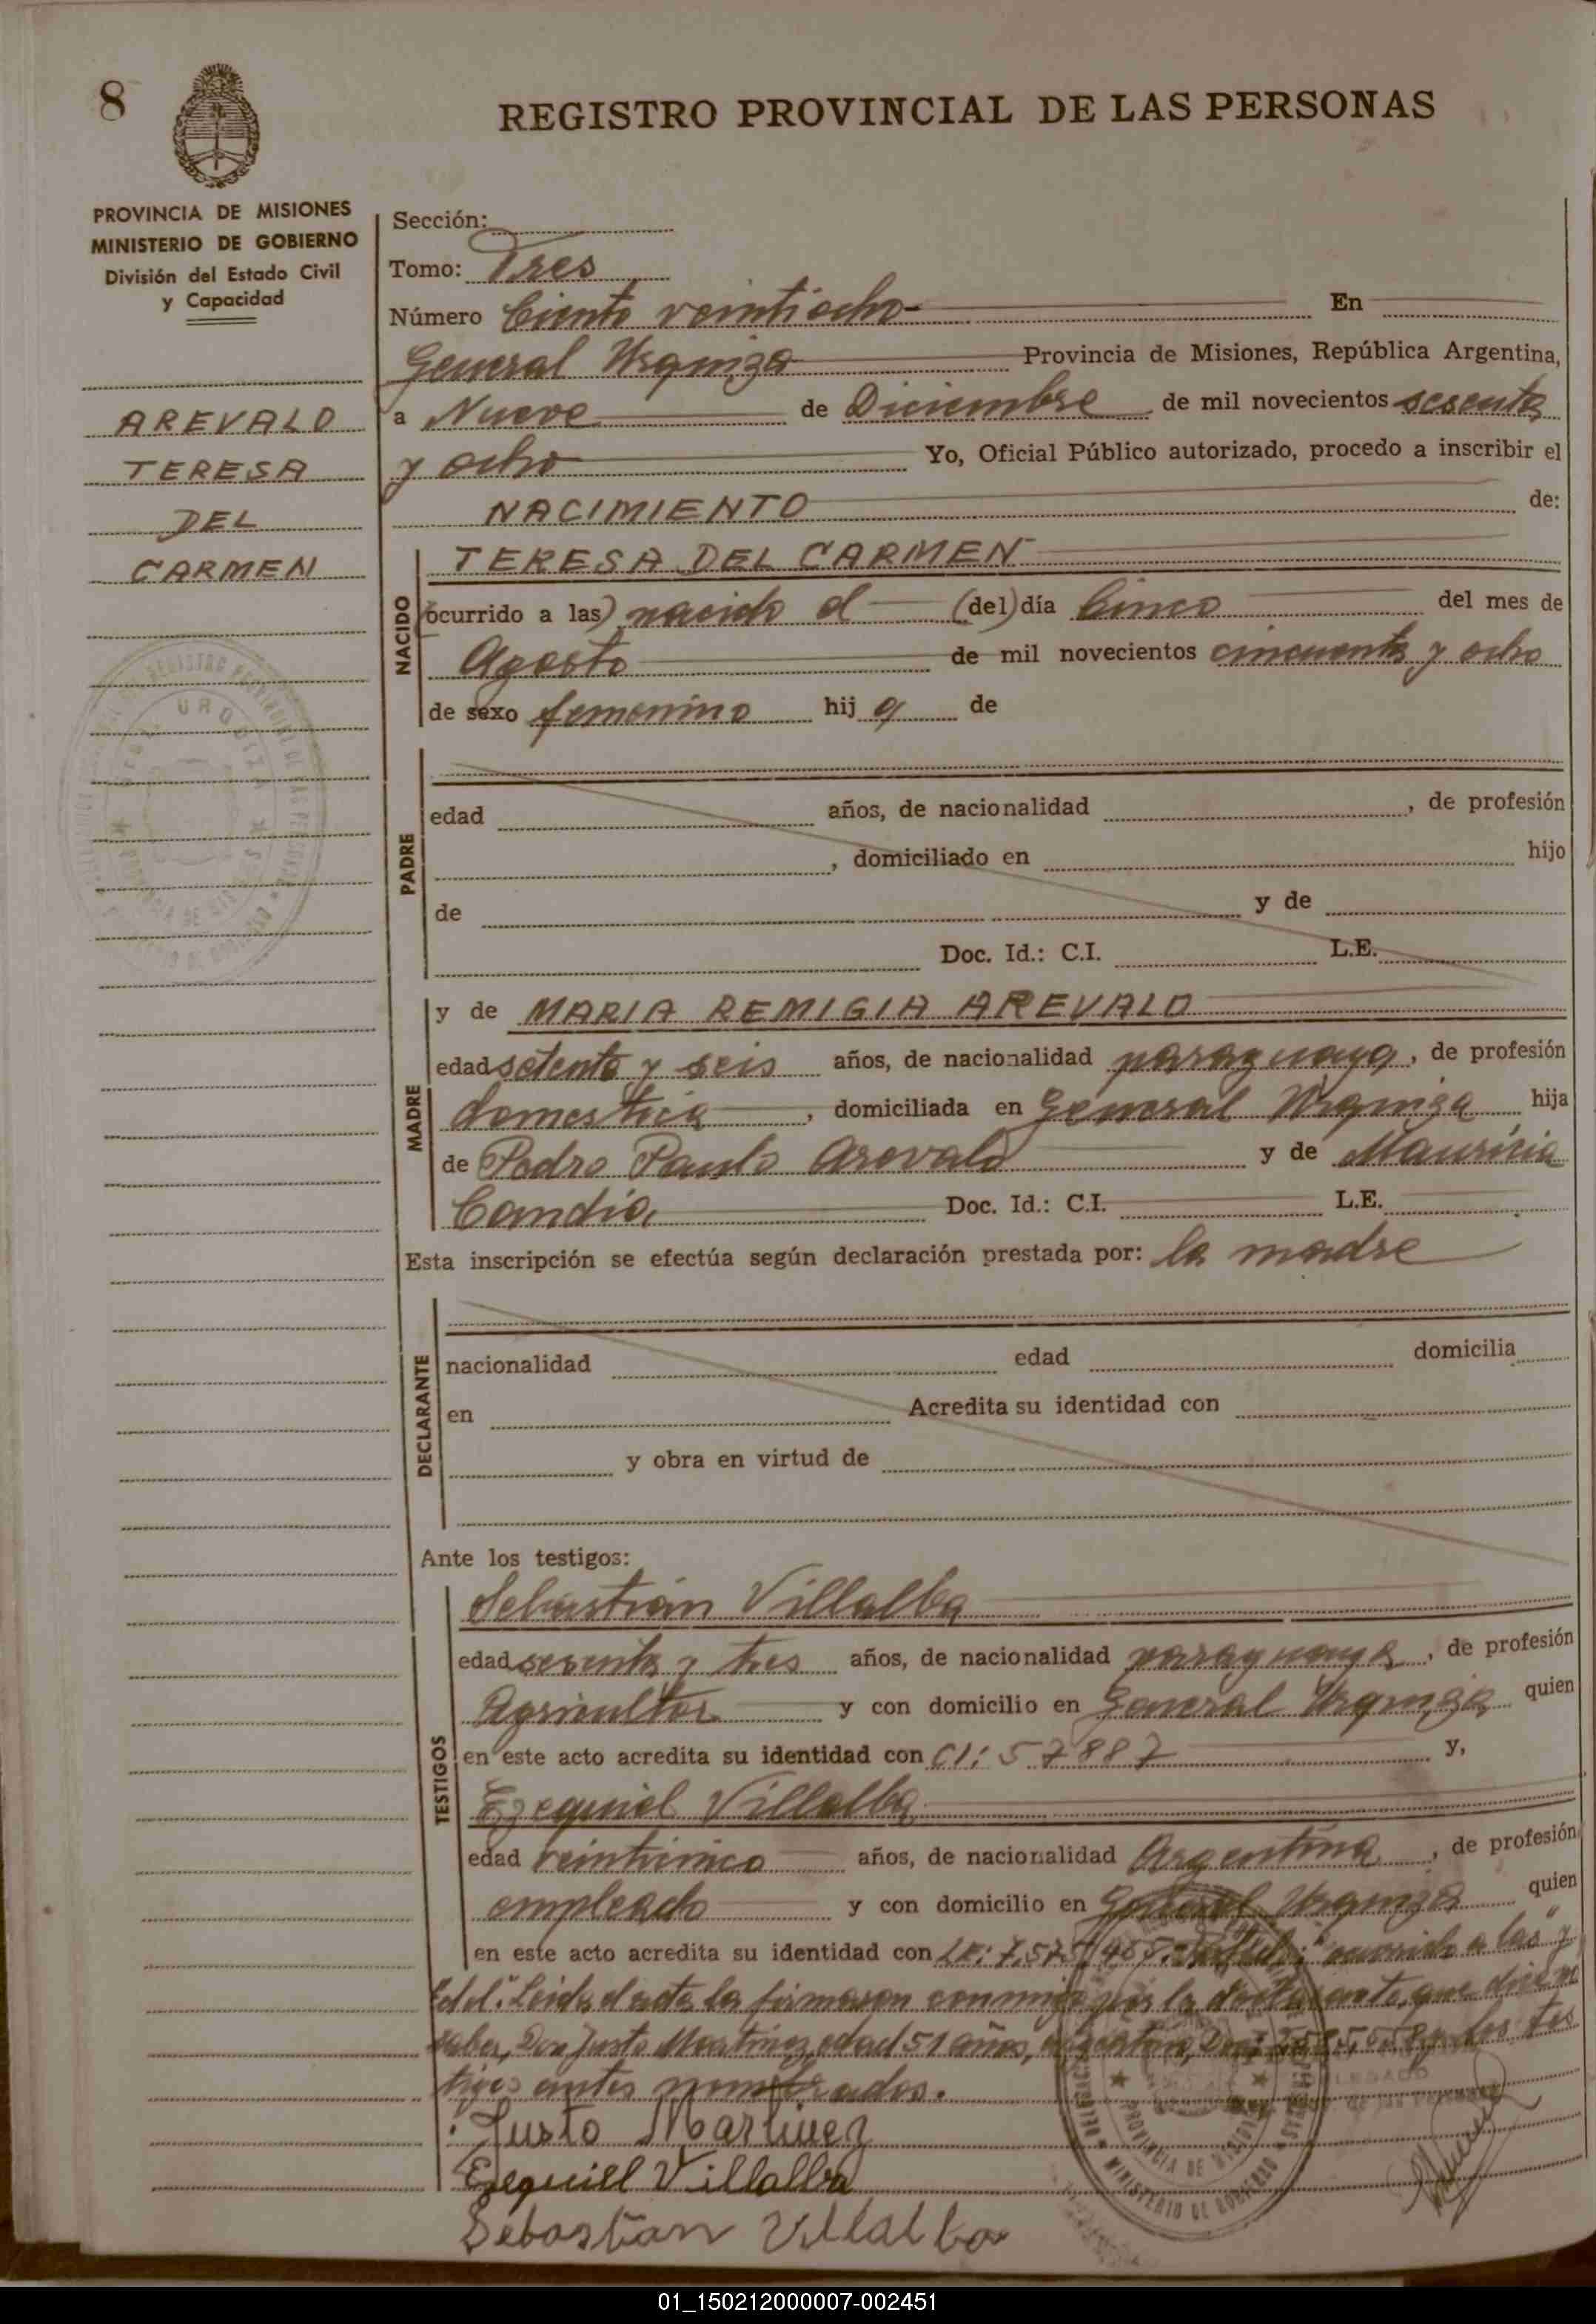 8
REGISTRO PROVINCIAL DE LAS PERSONAS
PROVINCIA DE MISIONES
MINISTERIO DE GOBIERNO
División del Estado Civil
y Capacidad
AREVALO
TERESA
DEL
CARMEN
Sección:
Tomo: Tres
Número Ciento veintiocho- En
General Urquiza Provincia de Misiones, República Argentina,
a Nueve de Diciembre de mil novecientos sesenta
y ocho Yo, Oficial Público autorizado, procedo a inscribir el
NACIMIENTO de:
NACIDO
TERESA DEL CARMEN
(ocurrido a las) nacido el (del) día Cinco del mes de
Agosto de mil novecientos cincuenta y ocho
de sexo femenino hij a de
PADRE
edad años, de nacionalidad , de profesión
, domiciliado en hijo
de y de
Doc. Id.: C.I. L.E.
MADRE
y de MARIA REMIGIA AREVALO
edad setenta y seis años, de nacionalidad paraguaya, de profesión
domestica, domiciliada en General Urquiza hija
de Pedro Paulo Arevalo y de Mauricia
Candia Doc. Id.: C.I. L.E.
Esta inscripción se efectúa según declaración prestada por: la madre
DECLARANTE
nacionalidad edad domicilia
en Acredita su identidad con
y obra en virtud de
Ante los testigos:
TESTIGOS
Sebastián Villalba
edad sesenta y tres años, de nacionalidad paraguaya, de profesión
Agricultor y con domicilio en General Urquiza quien
en este acto acredita su identidad con CI: 57887 y,
Ezequiel Villalba
edad veinticinco años, de nacionalidad Argentina, de profesión
empleado y con domicilio en General Urquiza quien
en este acto acredita su identidad con LE: 7.575. "ocurrido a las" y
"del". Leida el acta la firmaron conmigo por la declarante, que dice no
saber, Don Justo Martinez, edad 51 años, argentino, los tes
tigos antes nombrados.
Justo Martinez
Ezequiel Villalba
Sebastian Villalba
PROVINCIA DE MISIONES
MINISTERIO DE GOBIERNO
01_150212000007-002451